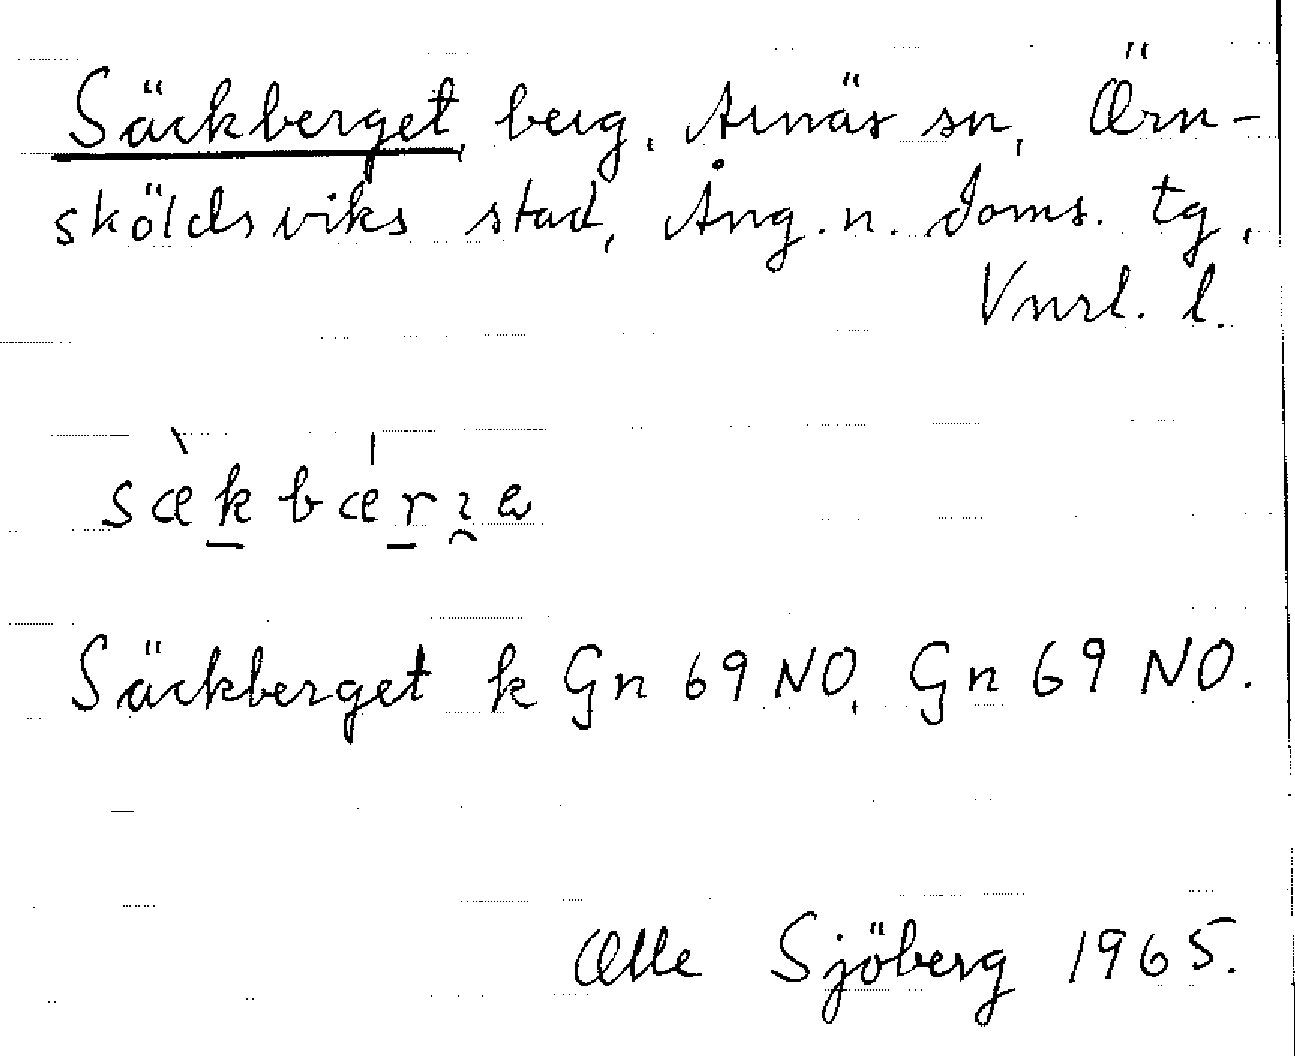 Säckberget, berg, Arnäs sn, Örn-
sköldsviks stad, Ång. n. doms. tg,
Vnrl. l.
Säckberget k Gn 69 NO, Gn 69 NO.
Olle Sjöberg 1965.